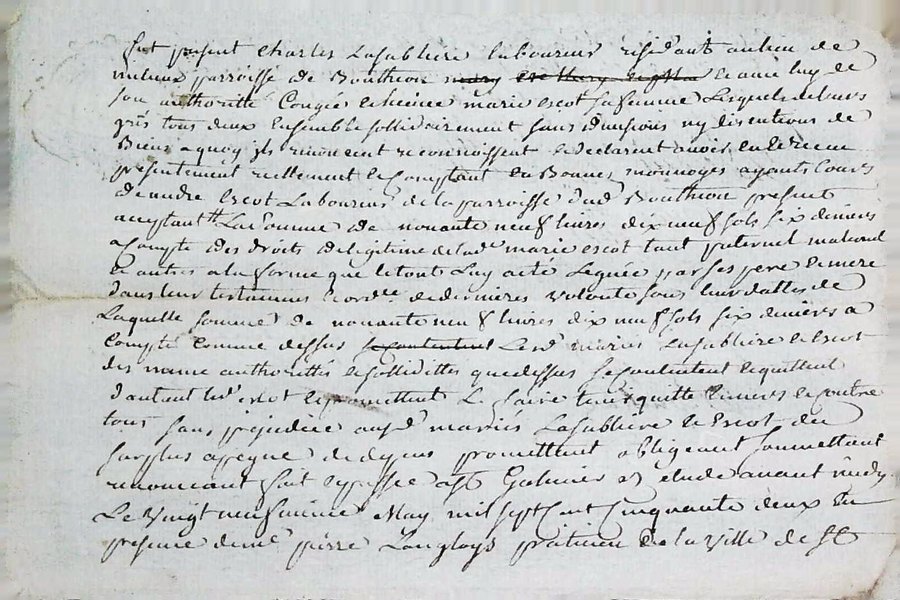 fut present Charles Lasabliere laboureur residant au lieu de
parroisse de Bouthion et avec luy de
son authorité Congée et licence marie escot sa femme Lesquels de leurs
grés tous deux Ensemble sollidairement sans divisions ny discutions de
Biens a quoy ils renoncent reconnoissent et declarent avoir eu et receu
presentement reellement et Comptant en Bonnes monnoyes ayants Cours
d'andre Escot Laboureur de la parroisse dud Bouthion present
acceptant La somme de nonante neuf livres dix neuf sols six deniers
a Compte des droits de legitime de lad marie escot tant paternel maternel
et autres a la forme que le tout Luy a eté Leguée par ses pere et mere
dans leur testament et ordce de dernieres volonté sous leur dattes de
Laquelle somme de nonante neuf livres dix neuf sols six deniers a
Compte comme dessus se contentent Lesd mariés Lasabliere et Escot
de même authorittés et sollidittes que dessus se Contentent et quittent
d'autant led escot et promettent Le faire tenir quitte Envers et contre
tous sans prejudice auxd mariés Lasabliere et Escot du
surplus promettent obligent soumettant
renoncant fait et passé a St Galmier etude avant midy
Le vingt neufvieme May mil sept Cent Cinquante deux En
presence de me pierre Langloys praticien de la Ville de St